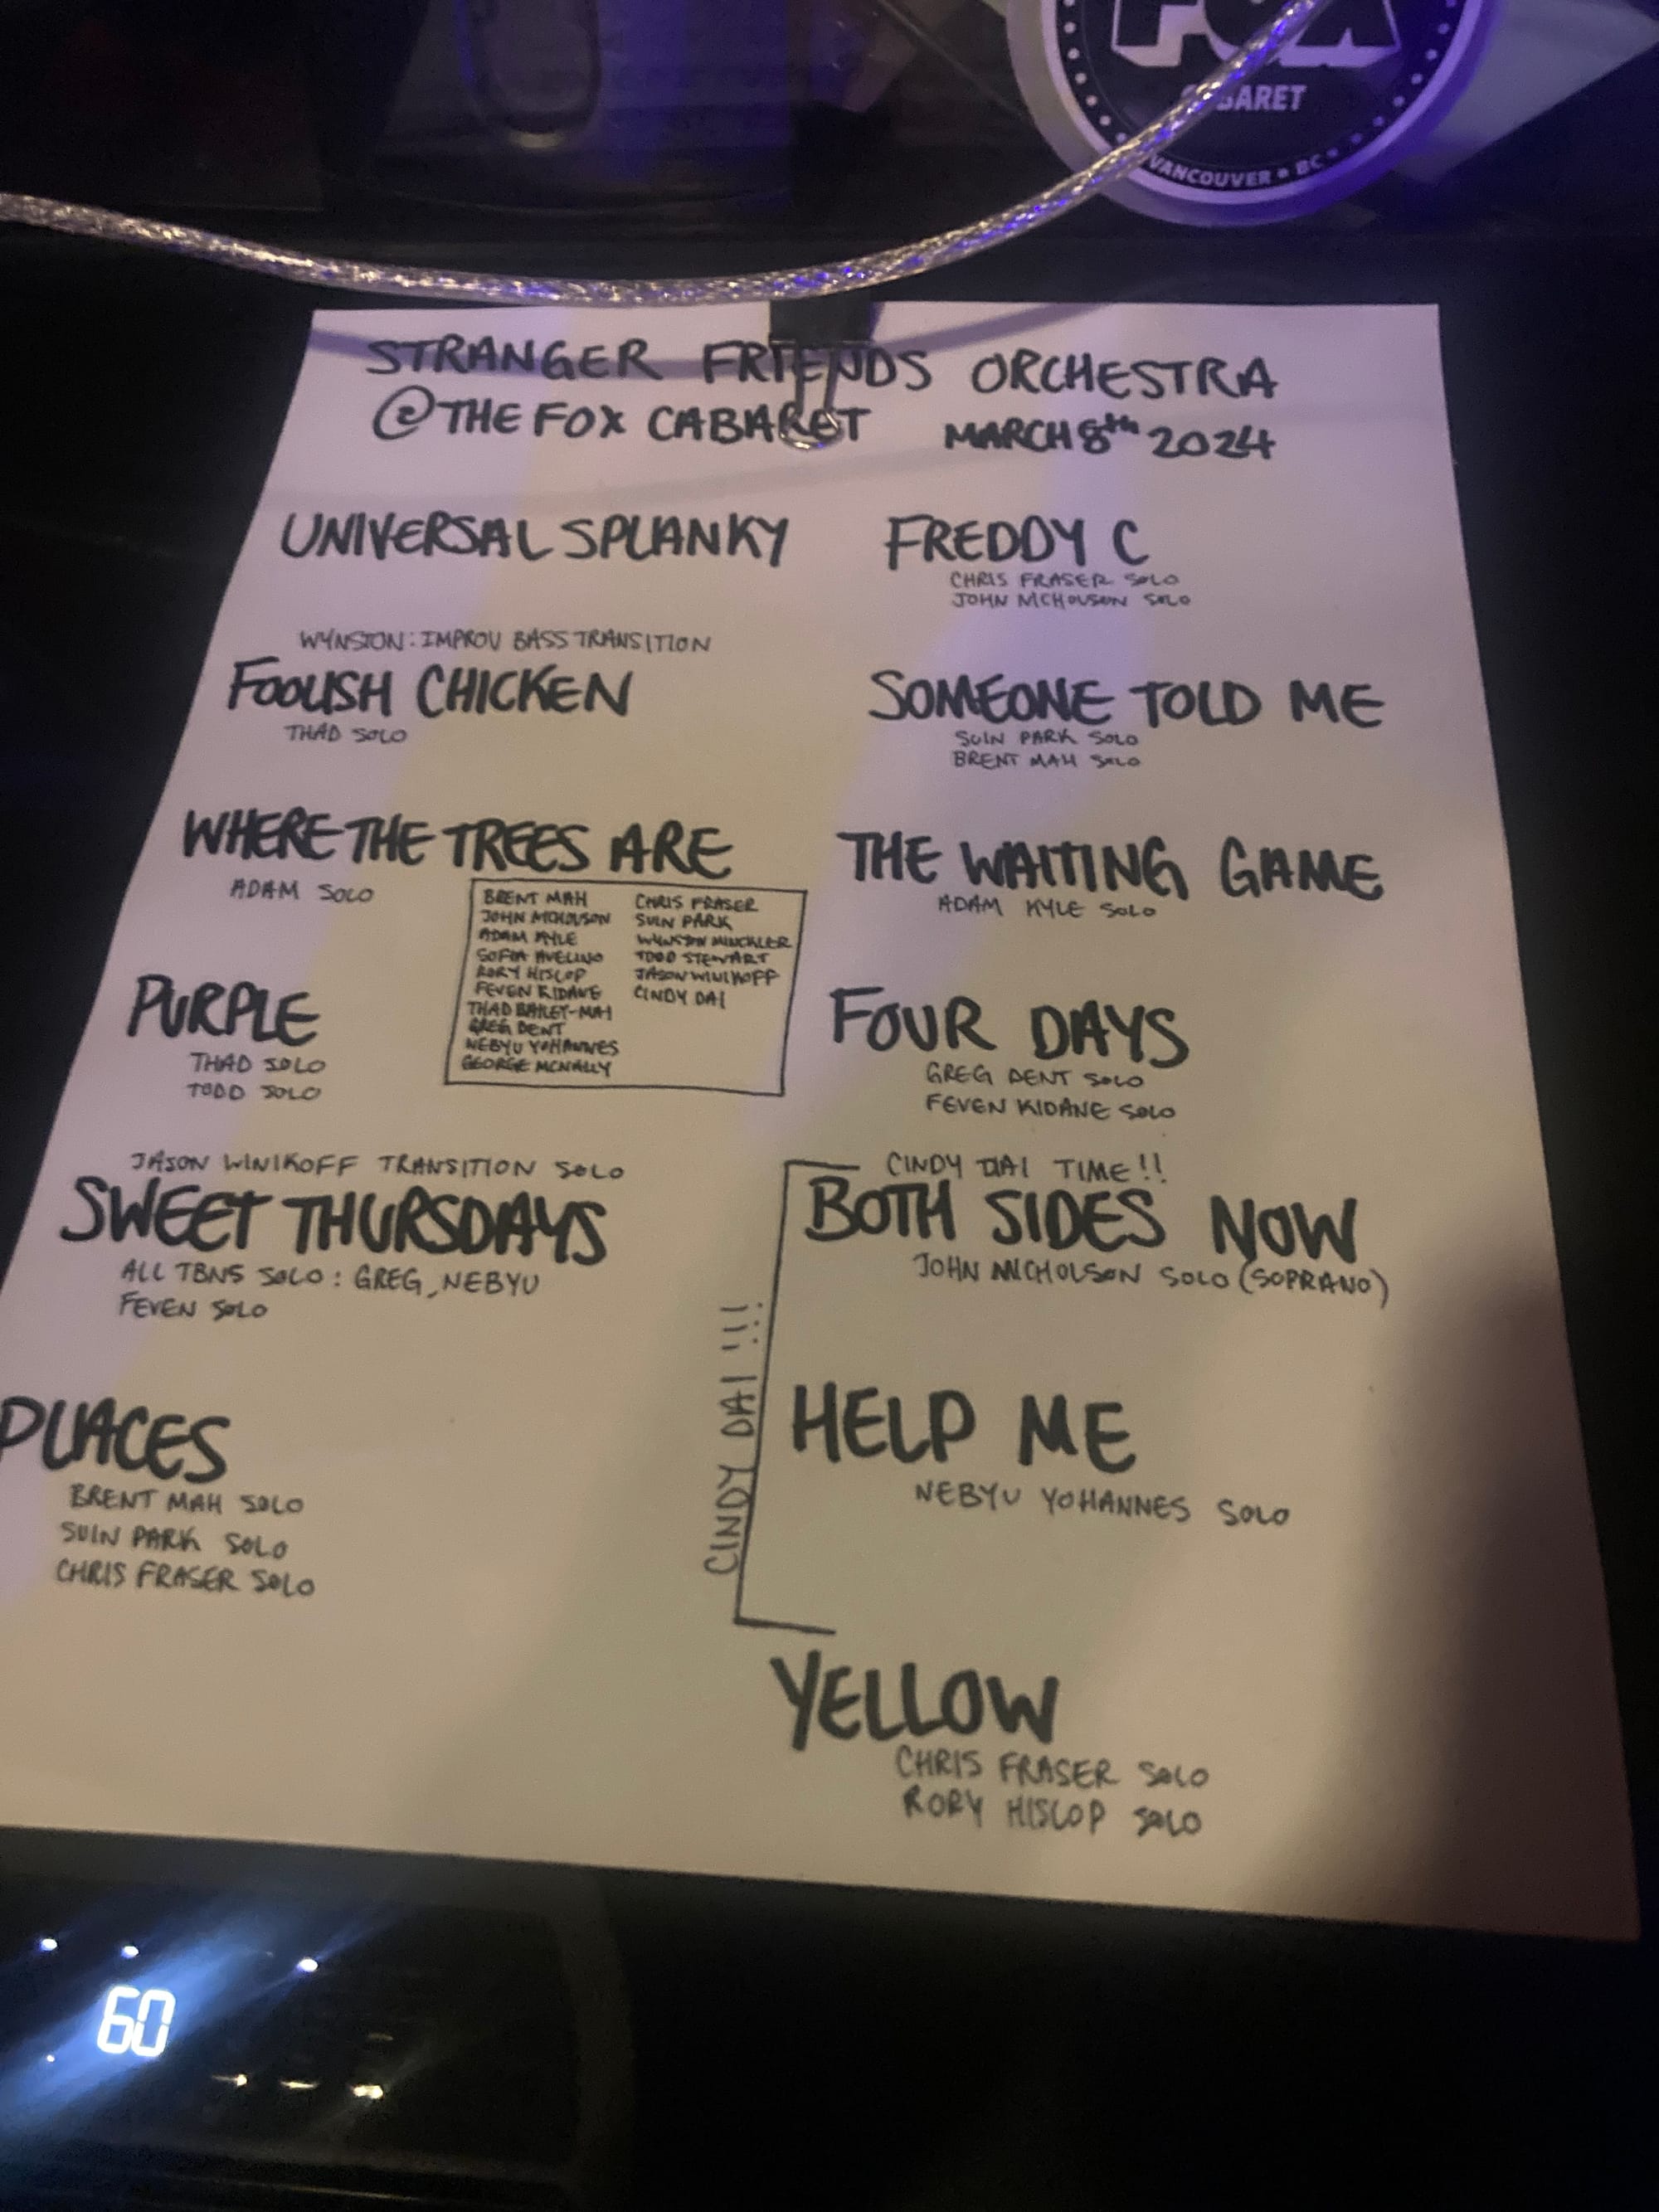 FOX
CABARET
VANCOUVER • BC
STRANGER FRIENDS ORCHESTRA
@ THE FOX CABARET MARCH 8th 2024
UNIVERSAL SPLANKY
WYNSTON: IMPROV BASS TRANSITION
FOOLISH CHICKEN
THAD SOLO
WHERE THE TREES ARE
ADAM SOLO
BRENT MAH
JOHN NICHOLSON
ADAM KYLE
SOFIA AVELINO
RORY HISLOP
FEVEN KIDANE
THAD BAILEY-MAI
GREG DENT
NEBYU YOHANNES
GEORGE MCNALLY
CHRIS FRASER
SUIN PARK
WYNSTON MINCKLER
TODD STEWART
JASON WINIKOFF
CINDY DAI
PURPLE
THAD SOLO
TODD SOLO
JASON WINIKOFF TRANSITION SOLO
SWEET THURSDAYS
ALL TBNS SOLO: GREG, NEBYU
FEVEN SOLO
PLACES
BRENT MAH SOLO
SUIN PARK SOLO
CHRIS FRASER SOLO
FREDDY C
CHRIS FRASER SOLO
JOHN NICHOLSON SOLO
SOMEONE TOLD ME
SUIN PARK SOLO
BRENT MAH SOLO
THE WAITING GAME
ADAM KYLE SOLO
FOUR DAYS
GREG DENT SOLO
FEVEN KIDANE SOLO
CINDY DAI TIME!!
BOTH SIDES NOW
JOHN NICHOLSON SOLO (SOPRANO)
CINDY DAI !!!
HELP ME
NEBYU YOHANNES SOLO
YELLOW
CHRIS FRASER SOLO
RORY HISLOP SOLO
60